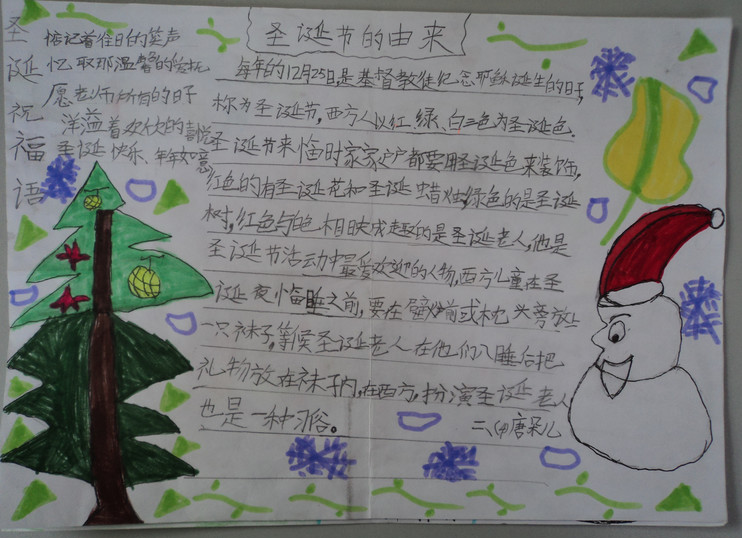 圣诞祝福语
惦记着往日的笑声
忆取那温馨的爱抚
愿老师所有的日子
洋溢着欢快的喜悦
圣诞快乐、年年如意
圣诞节的由来
每年的12月25日是基督教徒纪念耶稣诞生的日子,
称为圣诞节,西方人以红、绿、白三色为圣诞色.
圣诞节来临时家家户户都要用圣诞色来装饰,
红色的有圣诞花和圣诞蜡烛,绿色的是圣诞
树,红色与白色相映成趣的是圣诞老人,他是
圣诞节活动中最受欢迎的人物,西方儿童在圣
诞夜临睡之前,要在壁炉前或枕头旁放上
一只袜子,等候圣诞老人在他们入睡后把
礼物放在袜子内,在西方,扮演圣诞老人
也是一种习俗。
唐朵儿